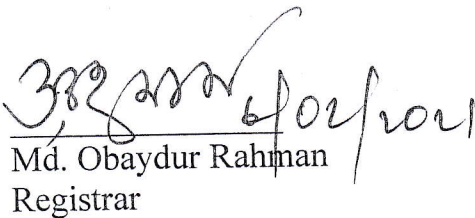 ৮/০২/২০২১
Md. Obaydur Rahman
Registrar